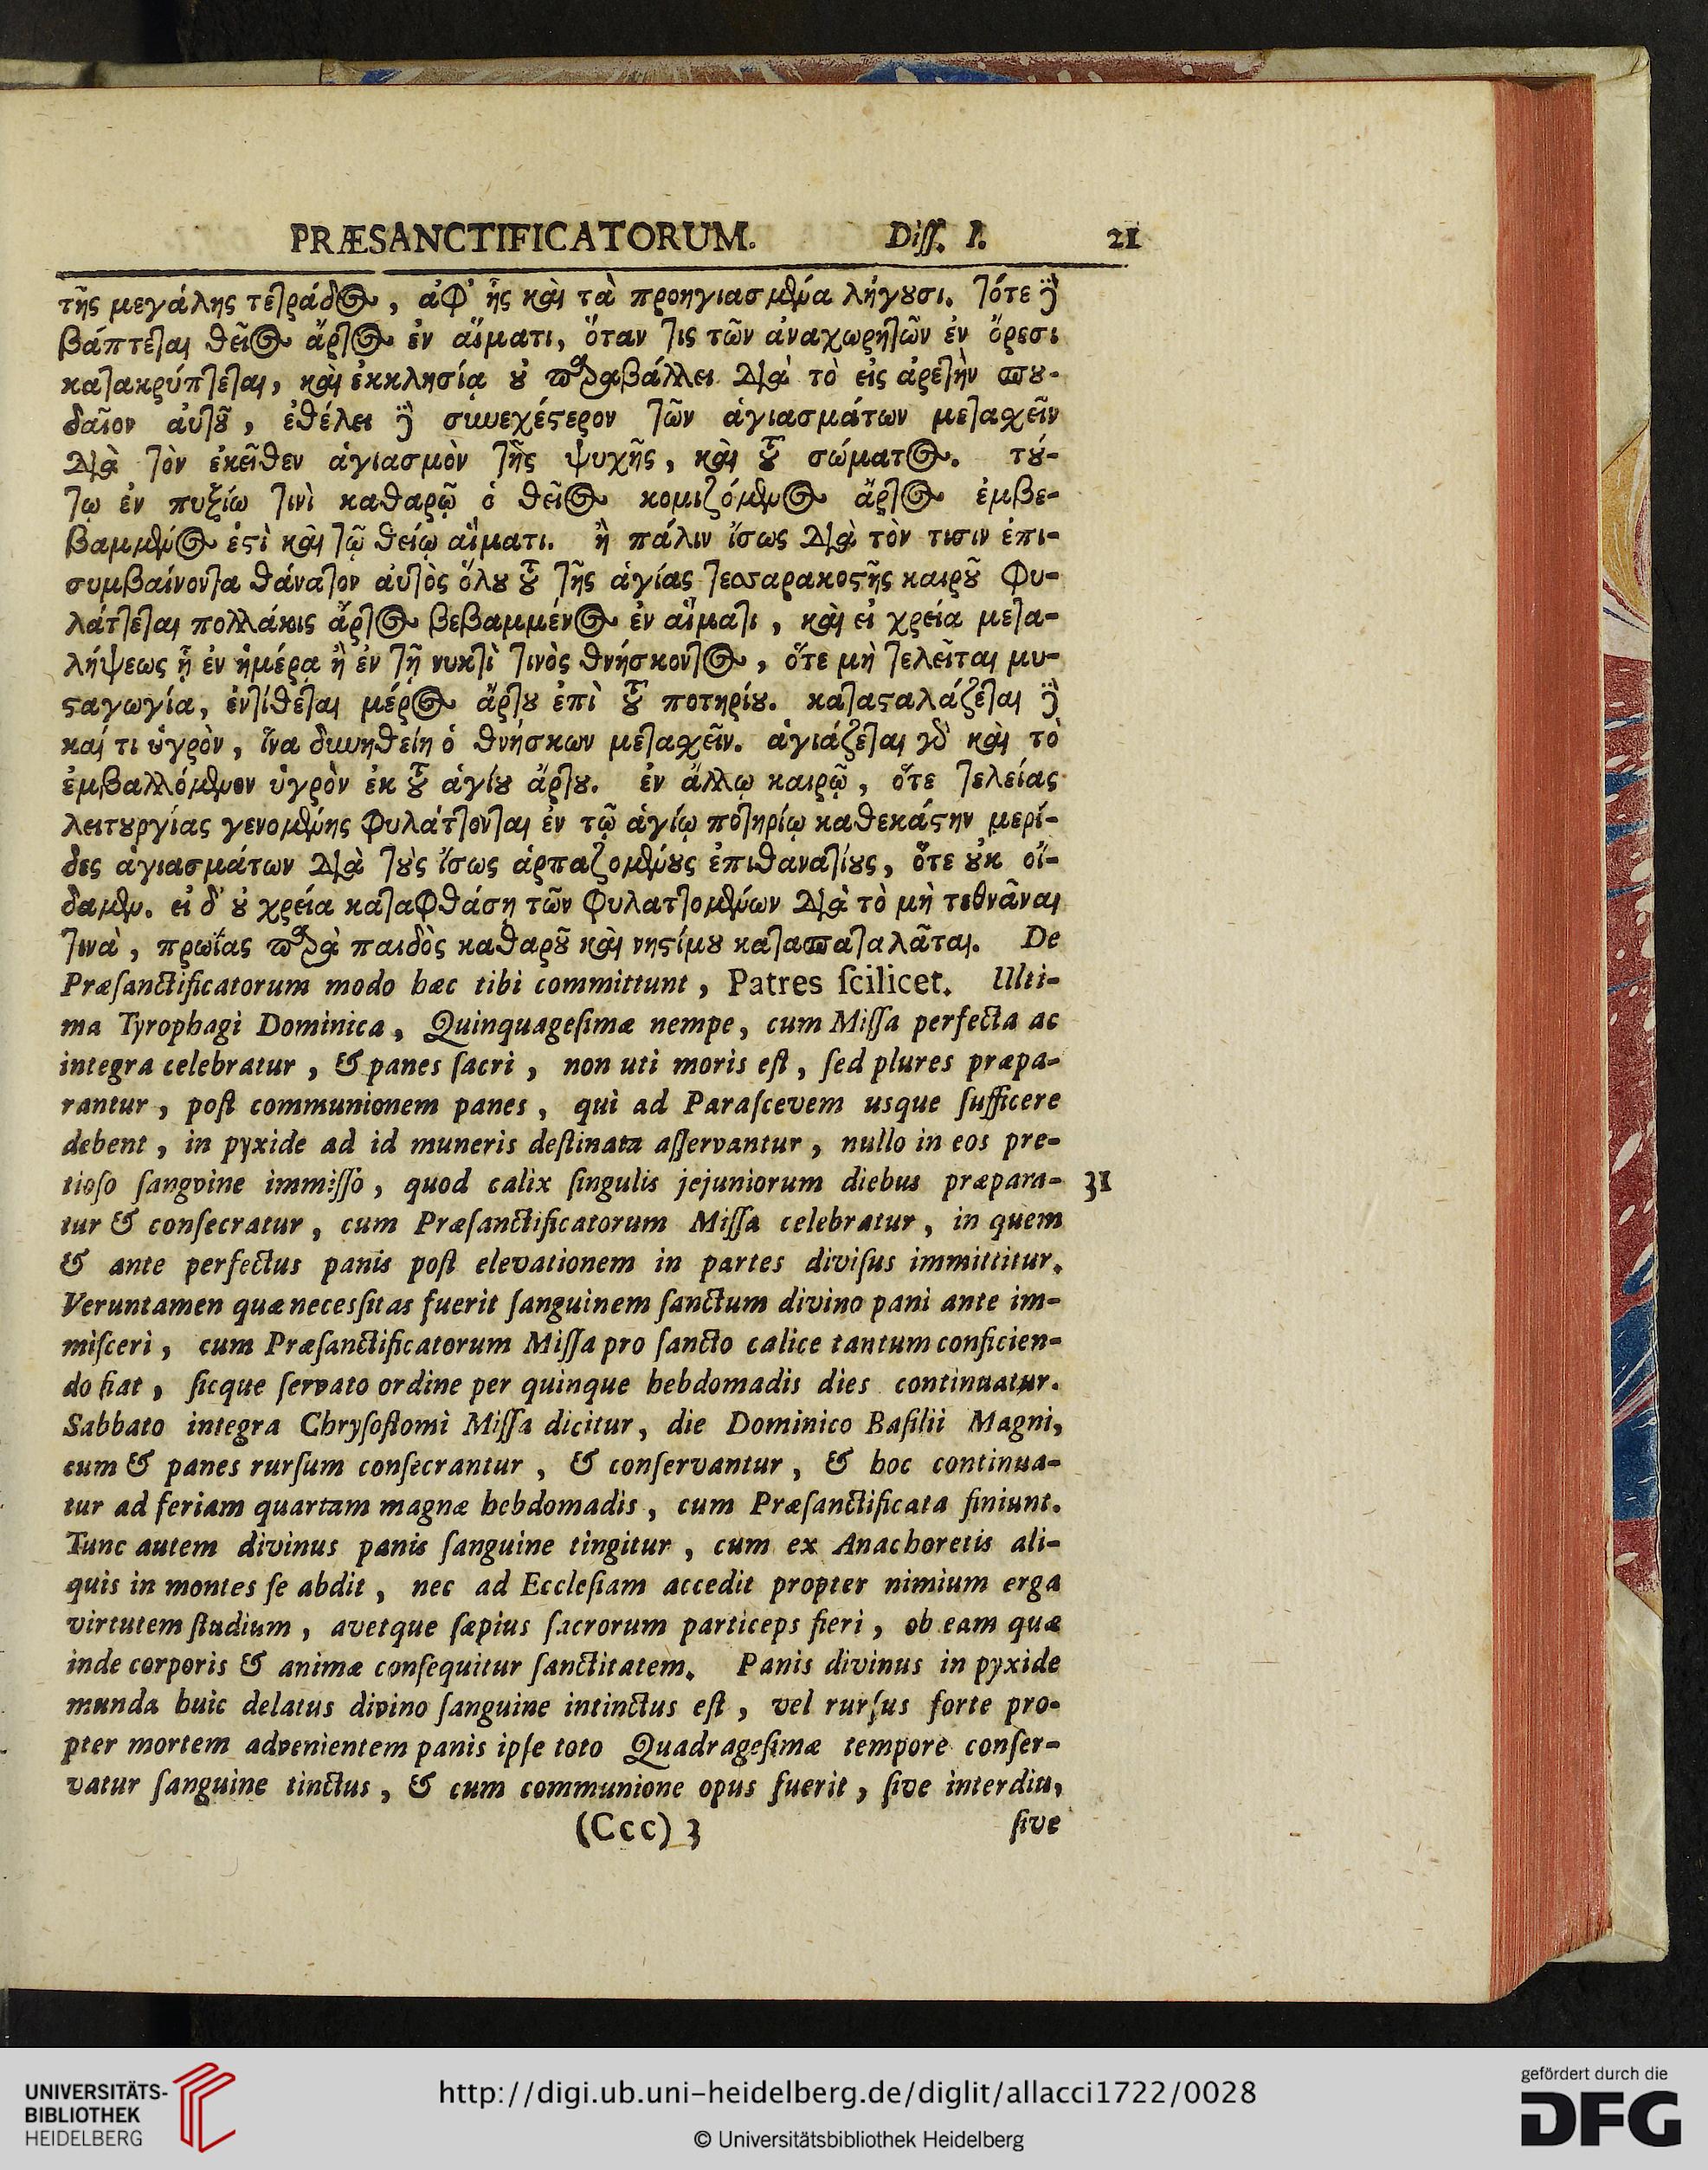 PRÆSANCTIFICATORUM. Diſſ. I. 21
τῆς μεγάλης τετράδος, ἀφ' ἧς καὶ τὰ προηγιασμένα λήγουσι. τότε δὲ
βάπτεται θεῖος ἄρτος ἐν αἵματι, ὅταν τις τῶν ἀναχωρητῶν ἐν ὄρεσι
κατακρύπτεται, καὶ ἐκκλησίᾳ οὐ παραβάλλει διὰ τὸ εἰς ἀρετὴν σπου-
δαῖον αὐτοῦ, ἐθέλει δὲ συνεχέστερον τῶν ἁγιασμάτων μετασχεῖν
διὰ τὸν ἐκεῖθεν ἁγιασμὸν τῆς ψυχῆς, καὶ τοῦ σώματος. τού-
τῳ ἐν πυξίω τινὶ καθαρῷ ὁ θεῖος κομιζόμενος ἄρτος ἐμβε-
βαμμένος ἐστὶ καὶ τῷ θείῳ αἵματι. ἢ πάλιν ἴσως διὰ τὸν τισιν ἐπι-
συμβαίνοντα θάνατον αὐτὸς ὅλου τοῦ τῆς ἁγίας τεσσαρακοστῆς καιροῦ φυ-
λάττεται πολλάκις ἄρτος βεβαμμένος ἐν αἵματι, καὶ εἰ χρεία μετα-
λήψεως ᾖ ἐν ἡμέρᾳ ἢ ἐν τῇ νυκτὶ τινὸς θνήσκοντος, ὅτε μὴ τελεῖται μυ-
σταγωγία, ἐντίθεται μέρος ἄρτου ἐπὶ τοῦ ποτηρίου. κατασταλάζεται δὲ
καί τι ὑγρὸν, ἵνα δυνηθείη ὁ θνήσκων μετασχεῖν. ἁγιάζεται γὰρ καὶ τὸ
ἐμβαλλόμενον ὑγρὸν ἐκ τοῦ ἁγίου ἄρτου. ἐν ἄλλῳ καιρῷ, ὅτε τελείας
λειτουργίας γενομένης φυλάττονται ἐν τῷ ἁγίῳ ποτηρίῳ καθεκάστην μερί-
δες ἁγιασμάτων διὰ τοὺς ἴσως ἁρπαζομένους ἐπιθανατίους, ὅτε οὐκ οἴ-
δαμεν. εἰ δ' οὐ χρεία καταφθάσῃ τῶν φυλαττομένων διὰ τὸ μὴ τεθνᾶναι
τινὰ, πρωΐας παρὰ παιδὸς καθαροῦ καὶ νηστίμου κατασπαταλᾶται. De
Præſanctificatorum modo hæc tibi committunt, Patres ſcilicet. Ulti-
ma Tyrophagi Dominica, Quinquageſimæ nempe, cum Miſſa perfecta ac
integra celebratur, & panes ſacri, non uti moris eſt, ſed plures præpa-
rantur, poſt communionem panes, qui ad Paraſcevem usque ſufficere
debent, in pyxide ad id muneris deſtinata aſſervantur, nullo in eos pre-
tioſo ſangvine immiſſo, quod calix ſingulis jejuniorum diebus præpara- 31
tur & conſecratur, cum Præſanctificatorum Miſſa celebratur, in quem
& ante perfectus panis poſt elevationem in partes diviſus immittitur.
Veruntamen quæ necesſitas fuerit ſanguinem ſanctum divino pani ante im-
miſceri, cum Præſanctificatorum Miſſa pro ſancto calice tantum conficien-
do fiat, ſicque ſervato ordine per quinque hebdomadis dies continuatur.
Sabbato integra Chryſoſtomi Miſſa dicitur, die Dominico Baſilii Magni,
cum & panes rurſum conſecrantur, & conſervantur, & hoc continua-
tur ad feriam quartam magnæ hebdomadis, cum Præſanctificata finiunt.
Tunc autem divinus panis ſanguine tingitur, cum ex Anachoretis ali-
quis in montes ſe abdit, nec ad Eccleſiam accedit propter nimium erga
virtutem ſtudium, avetque ſæpius ſacrorum particeps fieri, ob eam quæ
inde corporis & animæ conſequitur ſanctitatem. Panis divinus in pyxide
munda huic delatus divino ſanguine intinctus eſt, vel rurſus forte pro-
pter mortem advenientem panis ipſe toto Quadrageſimæ tempore conſer-
vatur ſanguine tinctus, & cum communione opus fuerit, ſive interdiu,
(Ccc) 3 ſive
UNIVERSITÄTS-
BIBLIOTHEK
HEIDELBERG
http://digi.ub.uni-heidelberg.de/diglit/allacci1722/0028
© Universitätsbibliothek Heidelberg
gefördert durch die
DFG